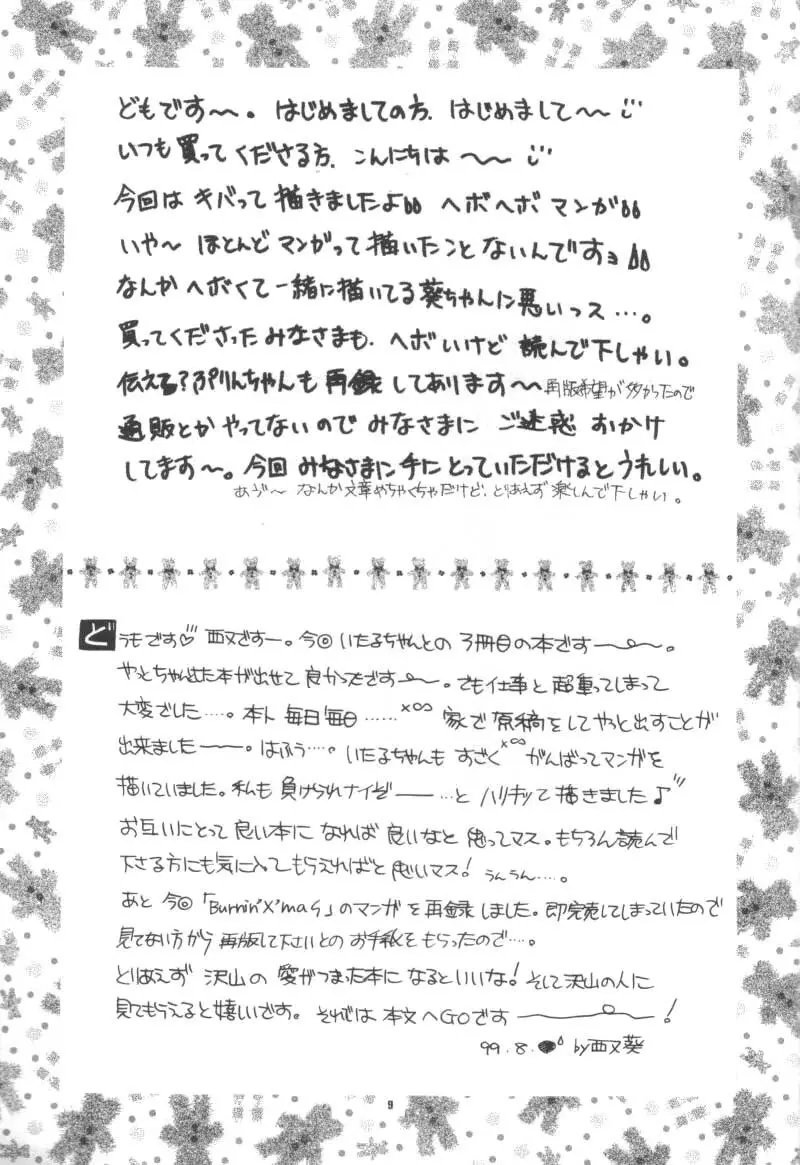 どもです〜。はじめましての方、はじめまして〜〜
いつも買ってくださる方、こんにちは〜〜
今回はキバって描きましたよ ヘボヘボマンガ
いや〜ほとんどマンガって描いたことないんですョ
なんかヘボくて一緒に描いてる葵ちゃんに悪いっス…。
買ってくださったみなさまも、ヘボいけど読んで下しゃい。
伝える?ぷりんちゃんも再録してあります〜再版希望が多かったので
通販とかやってないのでみなさまにご迷惑おかけ
してます〜。今回みなさまに手にとっていただけるとうれしい。
あう゛〜なんか文章めちゃくちゃだけど、とりあえず楽しんで下しゃい。
どうもです♡西又ですー。今回いたるちゃんとの3冊目の本です――。
やっとちゃんした本が出せて良かったです――。でも仕事と超重ってしまって
大変でした…。本ト毎日毎日……×∞ 家で原稿をしてやっと出すことが
出来ました――。はふう…。いたるちゃんもすごく×∞がんばってマンガを
描いていました。私も負けられナイぞ――…とハリキッて描きました♪
お互いにとって良い本になれば良いなと思ってマス。もちろん読んで
下さる方にも気に入ってもらえればと思いマス!うんうん…。
あと今回「Burnin'X'mas」のマンガを再録しました。即完売してしまっていたので
見てない方から再版して下さいとのお手紙をもらったので…。
とりあえず沢山の愛がつまった本になるといいな!そして沢山の人に
見てもらえると嬉しいです。それでは本文へGOです――!
99.8. by西又葵
9